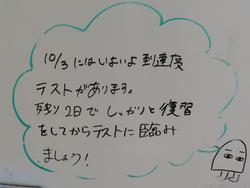 10/3 にはいよいよ到達度
テストがあります。
残り2日でしっかりと復習
をしてからテストに臨み
ましょう!